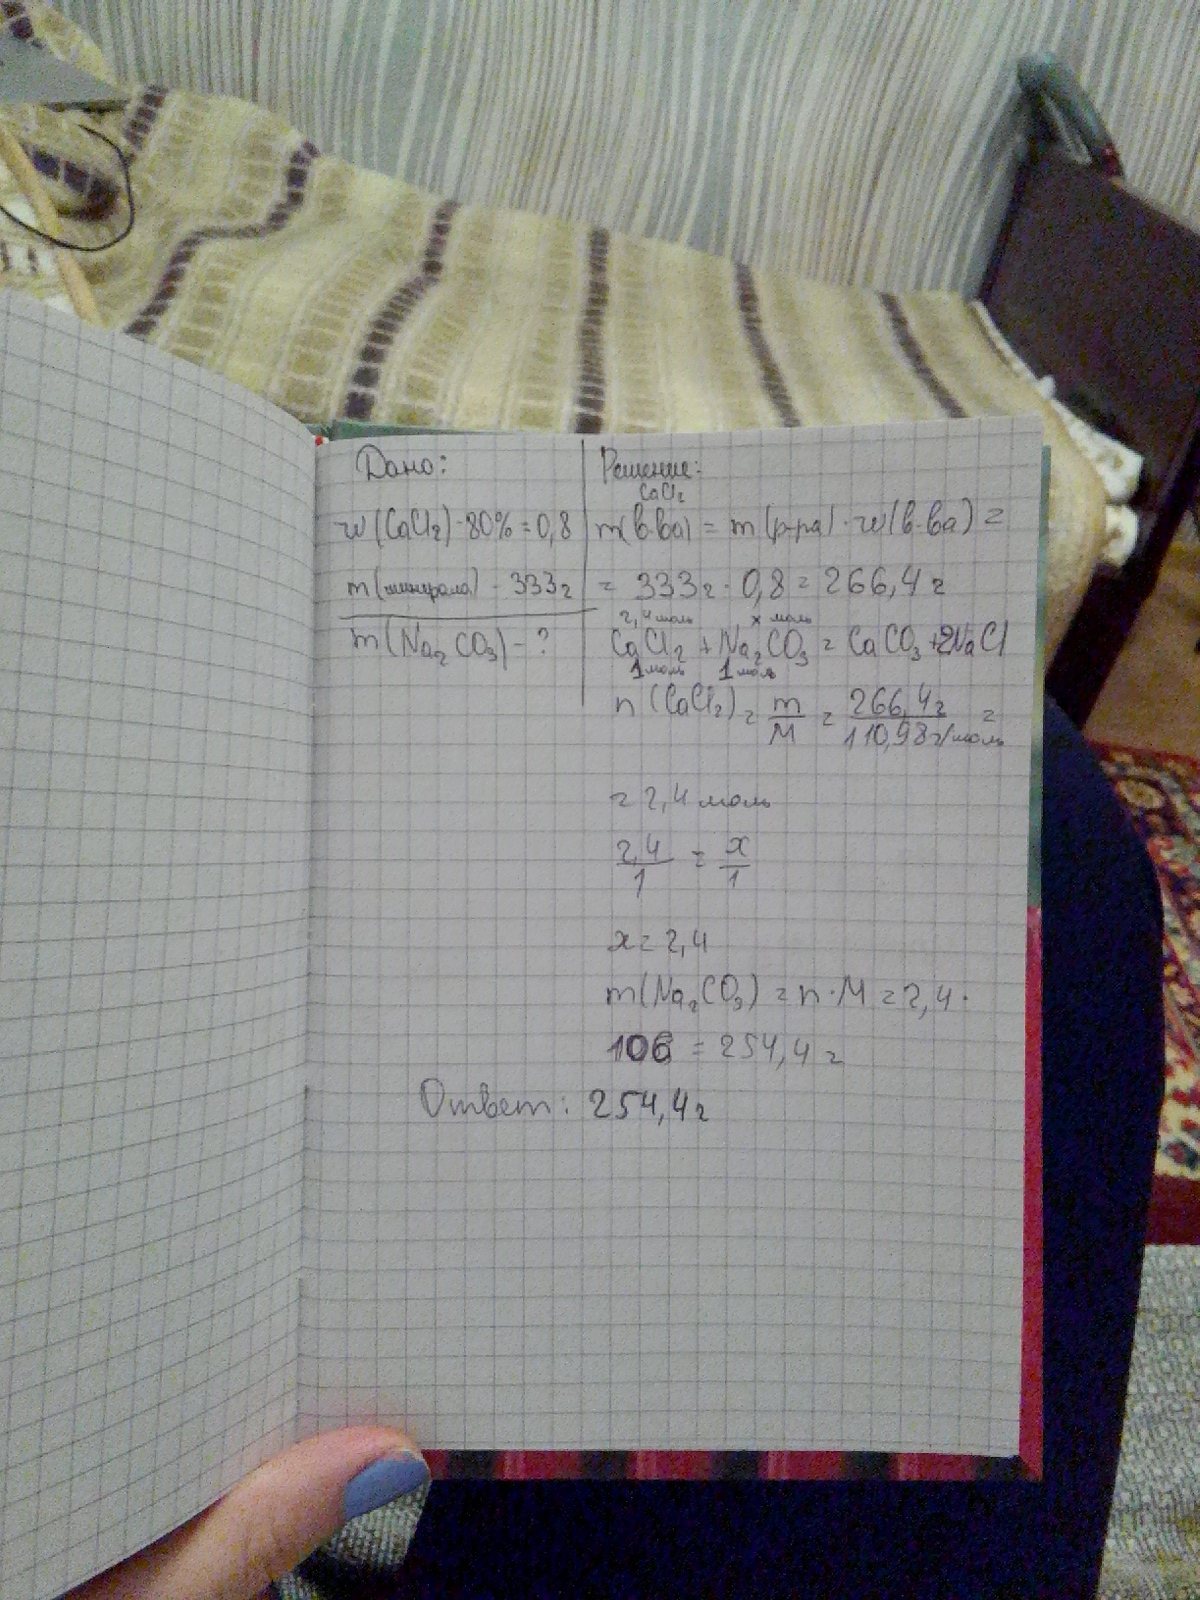 Дано:
w(CaCl2) - 80% = 0,8
m(минерала) - 333г
m(Na2CO3) - ?
Решение:
CaCl2
m(в-ва) = m(р-ра) · w(в-ва) =
= 333г · 0,8 = 266,4г
2,4моль x моль
CaCl2 + Na2CO3 = CaCO3 + 2NaCl
1моль 1моль
n(CaCl2) = m/M = 266,4г/110,98г/моль =
= 2,4 моль
2,4/1 = x/1
x = 2,4
m(Na2CO3) = n · M = 2,4 ·
106 = 254,4г
Ответ: 254,4г